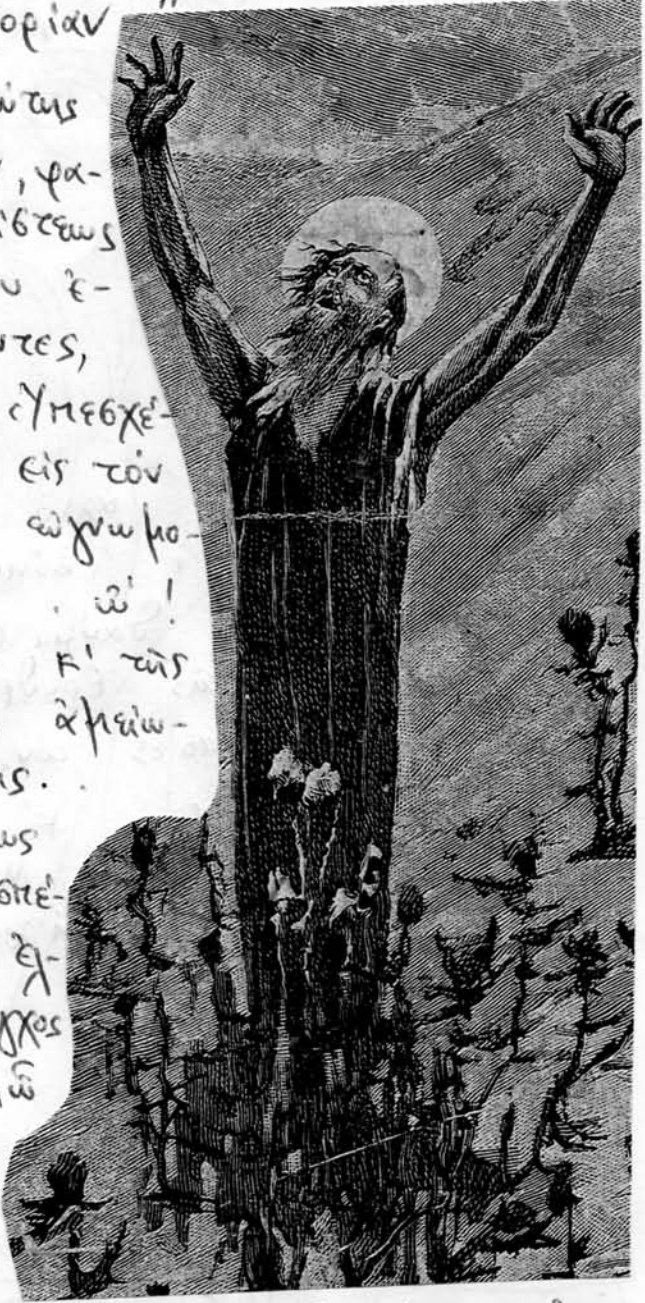 οριάν
ύτης
, φα-
ίστεως
υ ἐ-
ντες,
Ὑπεσχέ-
εἰς τόν
εὐγνωμο-
. ὤ !
κ' τῆς
ἀμείω-
ς.
ως
σπέ-
ἐλ-
γχος
ῶ